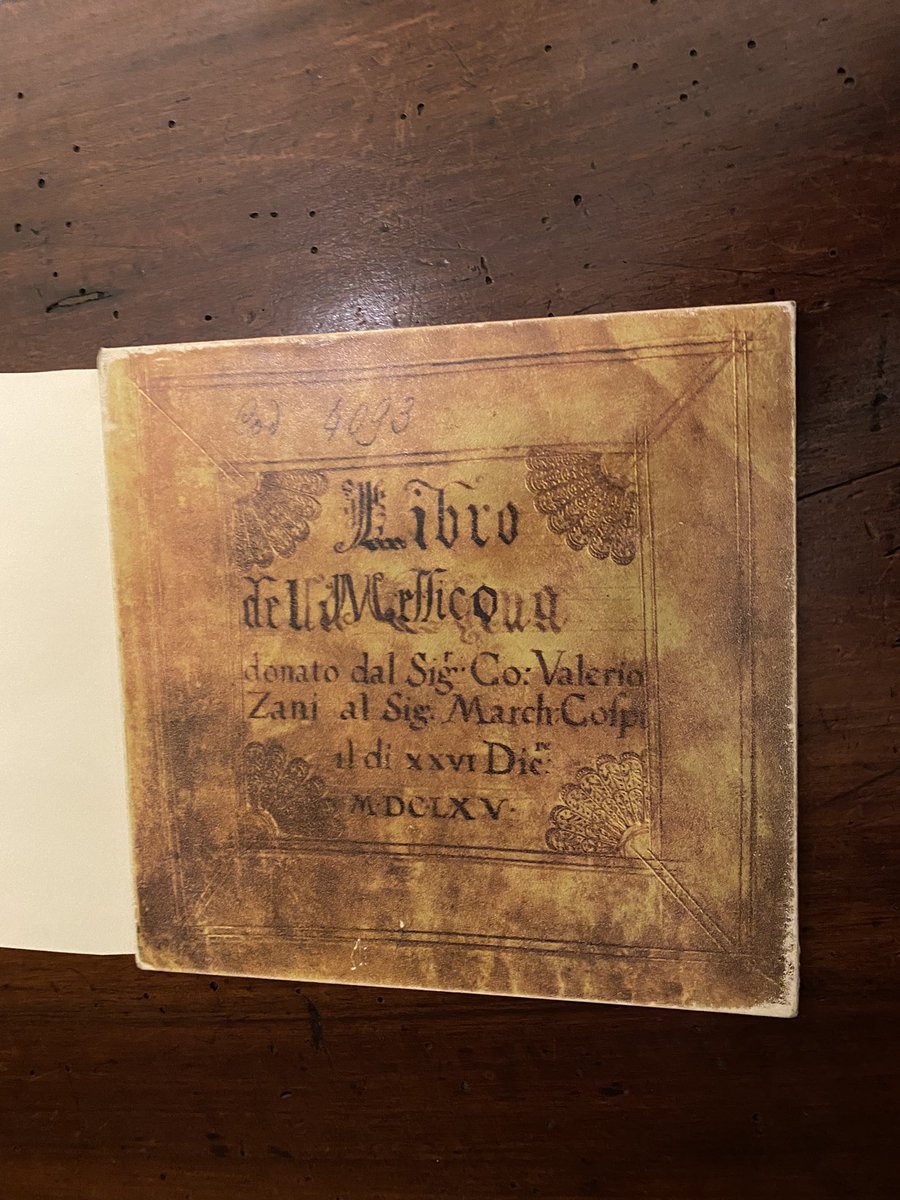 Cod 4093
Libro
del Meſſico
donato dal Sig.r Co: Valerio
Zani al Sig: March: Coſpi
il di XXVI Dic.re
M·DCLXV·